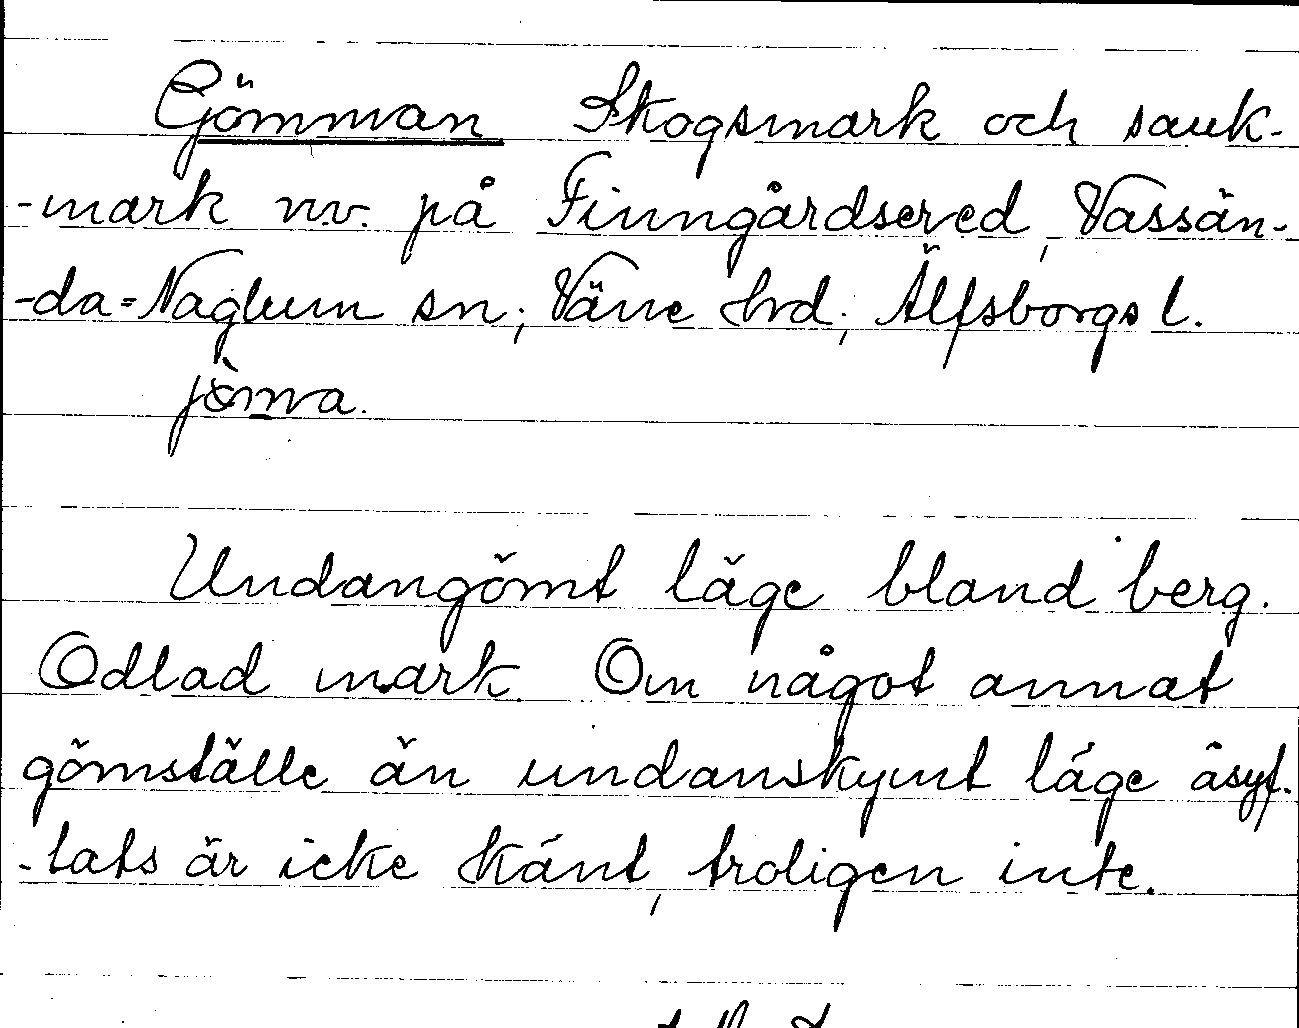 Gjömman Skogsmark och sank-
-mark nv. på Finngårdsered, Vassän-
-da=Naglum sn; Väne hd; Älfsborgs l.
jömma.
Undangömt läge bland berg.
Odlad mark. Om något annat
gömställe än undanskymt läge åsyf-
-tats är icke känt, troligen inte.